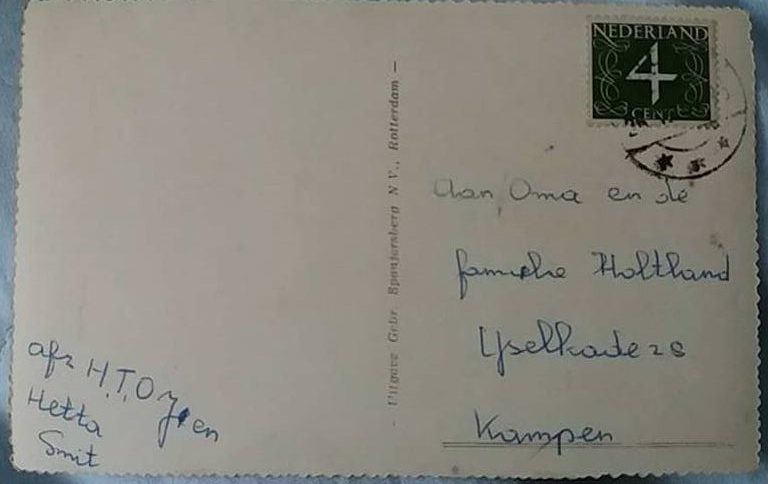 NEDERLAND
4
CENT
Aan Oma en de
familie Holtland
IJselkade 28
Kampen
- Uitgave Gebr. Spanjersberg N.V., Rotterdam -
afz H.T.O
en
Hetta
Smit